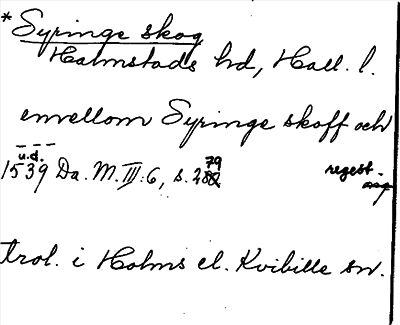 * Syringe skog
Halmstads hd, Hall. l.
emellom Syringe skoff och
u.d.
1539 Da. M. III:6, s. 279 regest-
trol. i Holms el. Kvibille sn.